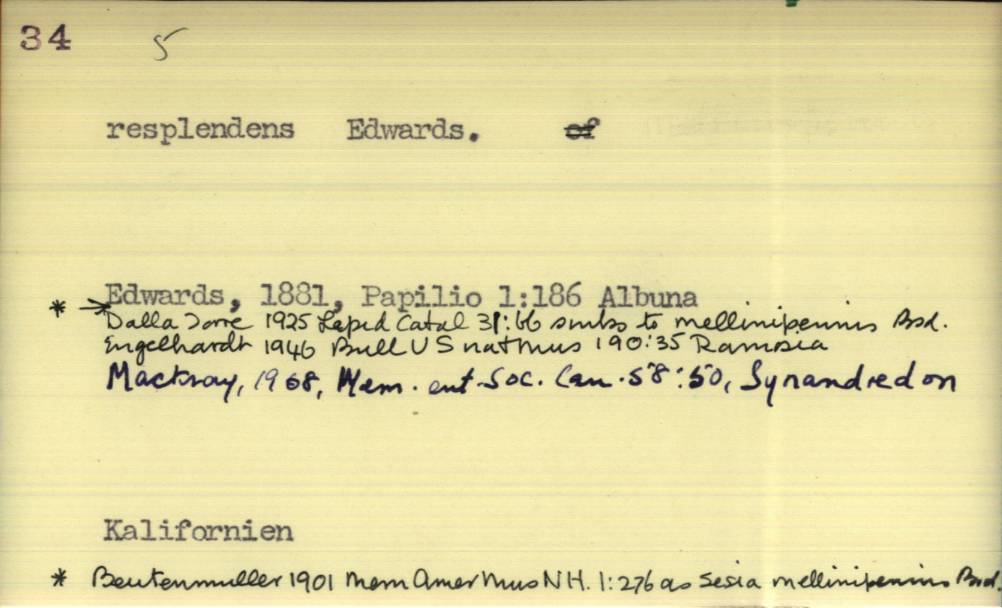 34 5
resplendens Edwards. of
* → Edwards, 1881, Papilio 1:186 Albuna
Dalla Torre 1925 Lepid Catal 31:66 sinks to mellinipennis Bsd.
Engelhardt 1946 Bull U S nat mus 190:35 Ramosia
Mackray, 1968, Mem. ent. Soc. Can. 58:50, Synandredon
Kalifornien
* Beutenmuller 1901 Mem Amer Mus N H. 1:276 as Sesia mellinipennis Bsd